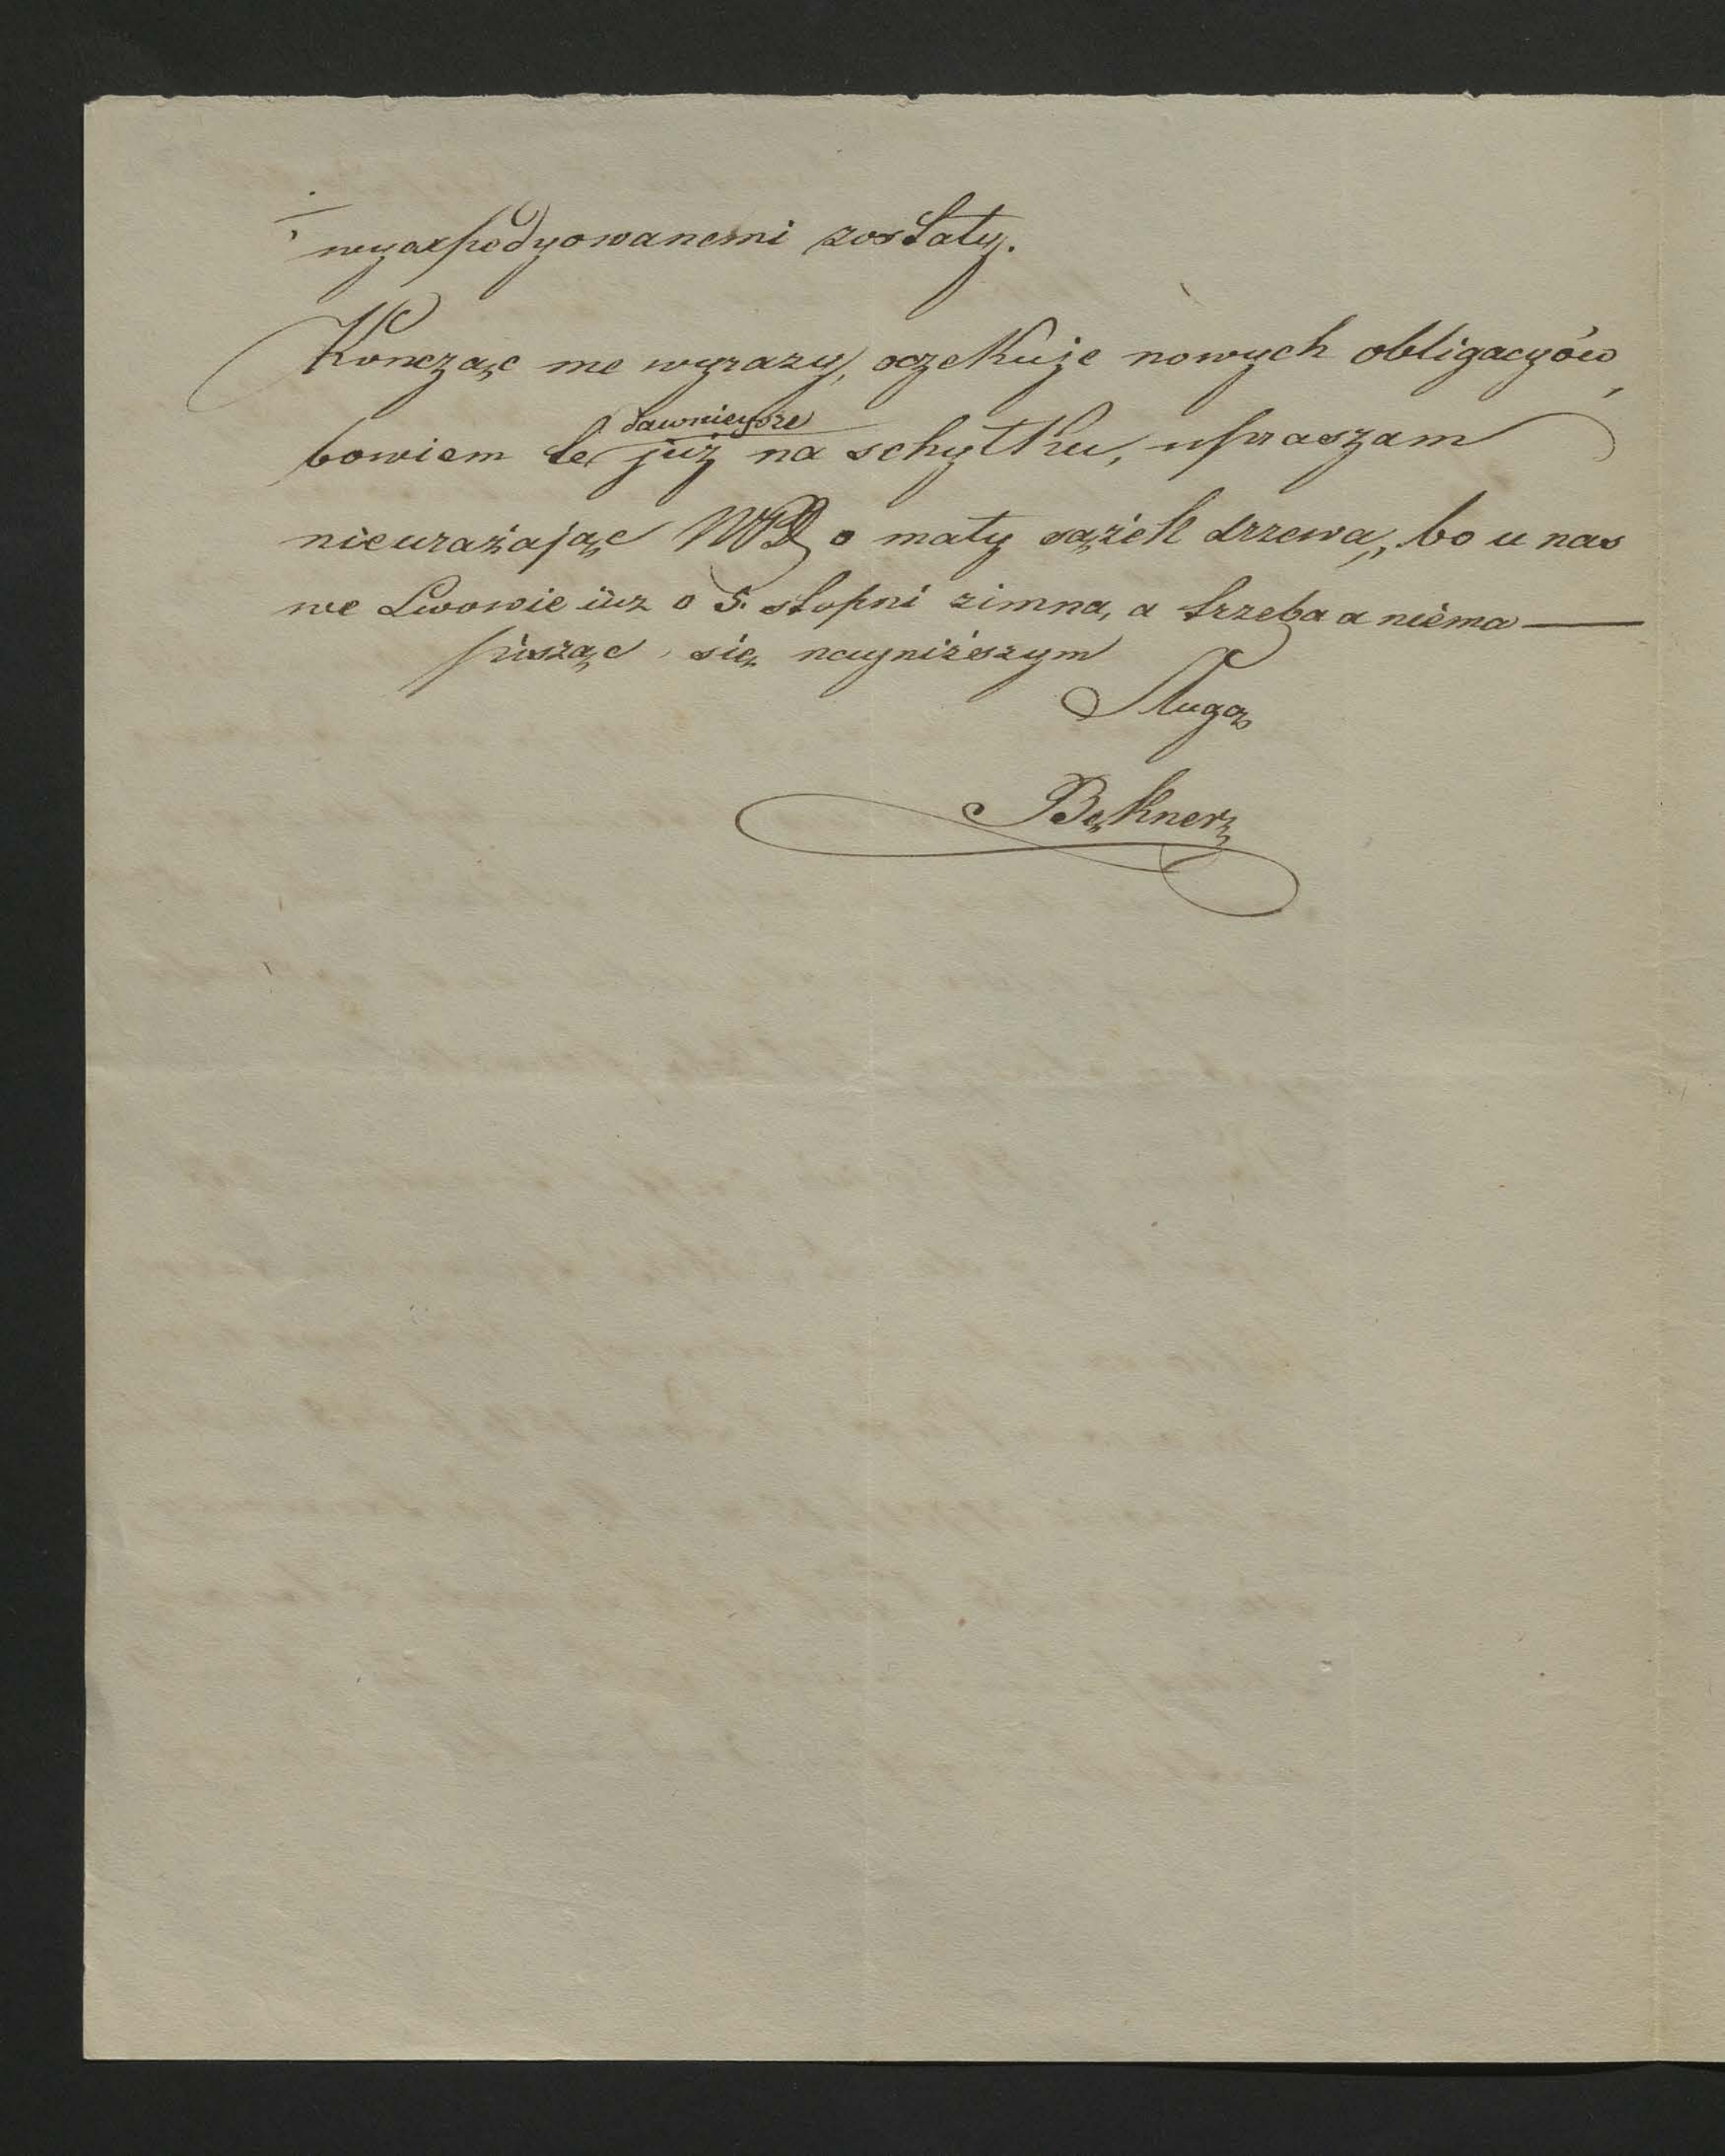 wyaxpedyowanemi zostały.
Kończąc me wyrazy, oczekuję nowych obligacyów,
dawnieysze
bowiem te już na schyłku, upraszam
nieurażając WPD o mały sążek drzewa, bo u nas
we Lwowie iuz o 5. stopni zimna, a trzeba a niéma —
pisząc się nayniższym
Sługą
Bękner